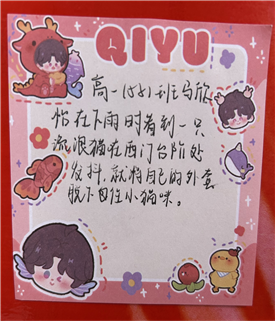 QIYU
高一(5)班马欣
怡在下雨时看到一只
流浪猫在西门台阶处
发抖,就将自己的外套
脱下包住小猫咪。